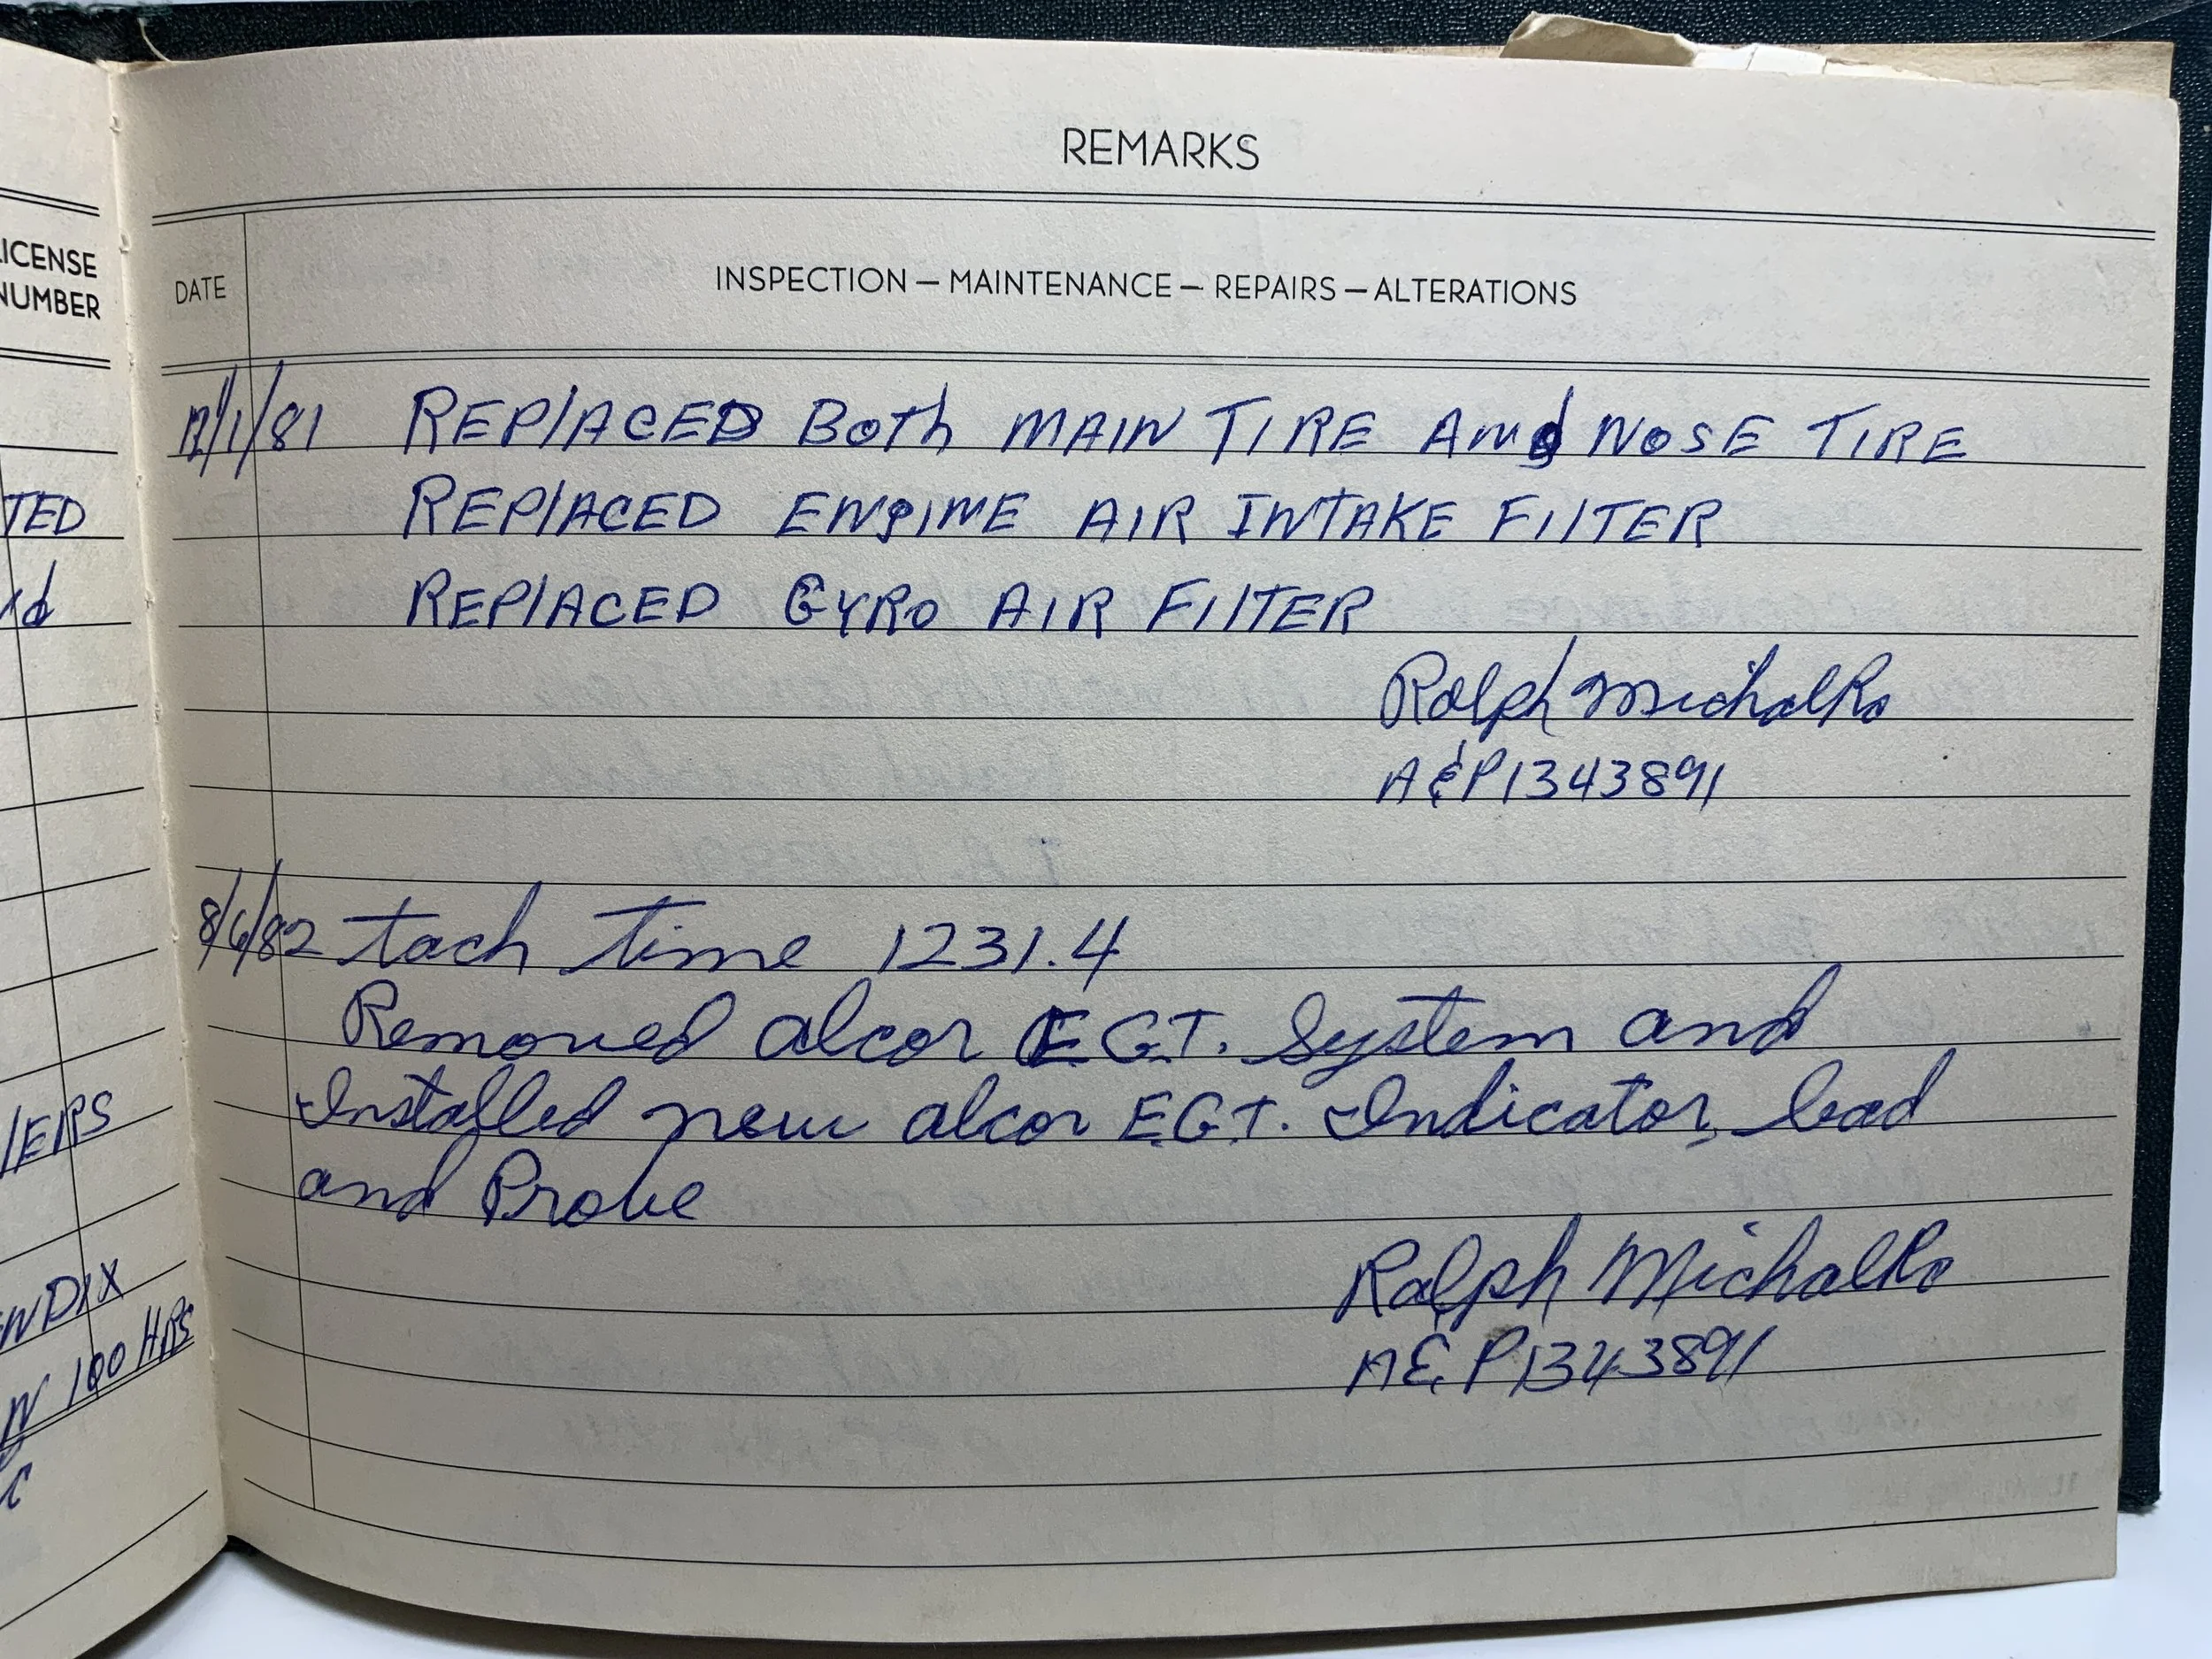 REMARKS
LICENSE
NUMBER
DATE
INSPECTION — MAINTENANCE — REPAIRS — ALTERATIONS
12/1/81 REPLACED Both MAIN TIRE And NOSE TIRE
REPLACED ENGINE AIR INTAKE FILTER
REPLACED GYRO AIR FILTER
Ralph Michalko
A&P1343891
8/6/82 tach time 1231.4
Removed alcor EGT. System and
Installed new alcor EGT. Indicator, lead
and Probe
Ralph Michalko
A&P1343891
TED
IERS
NDIX
100 HRS